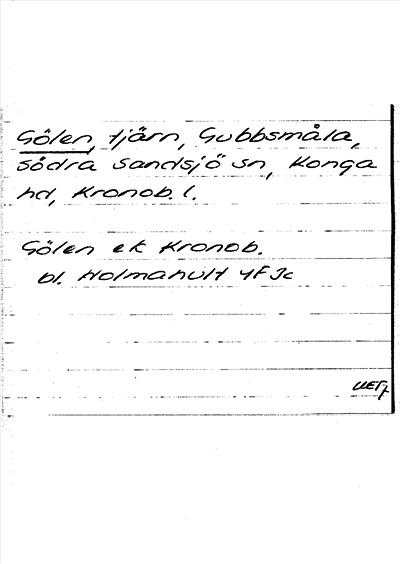 Gölen, tjärn, Gubbsmåla,
Södra Sandsjö sn, Konga
hd, Kronob. l.
Gölen ek Kronob.
bl. Holmahult 4F3c